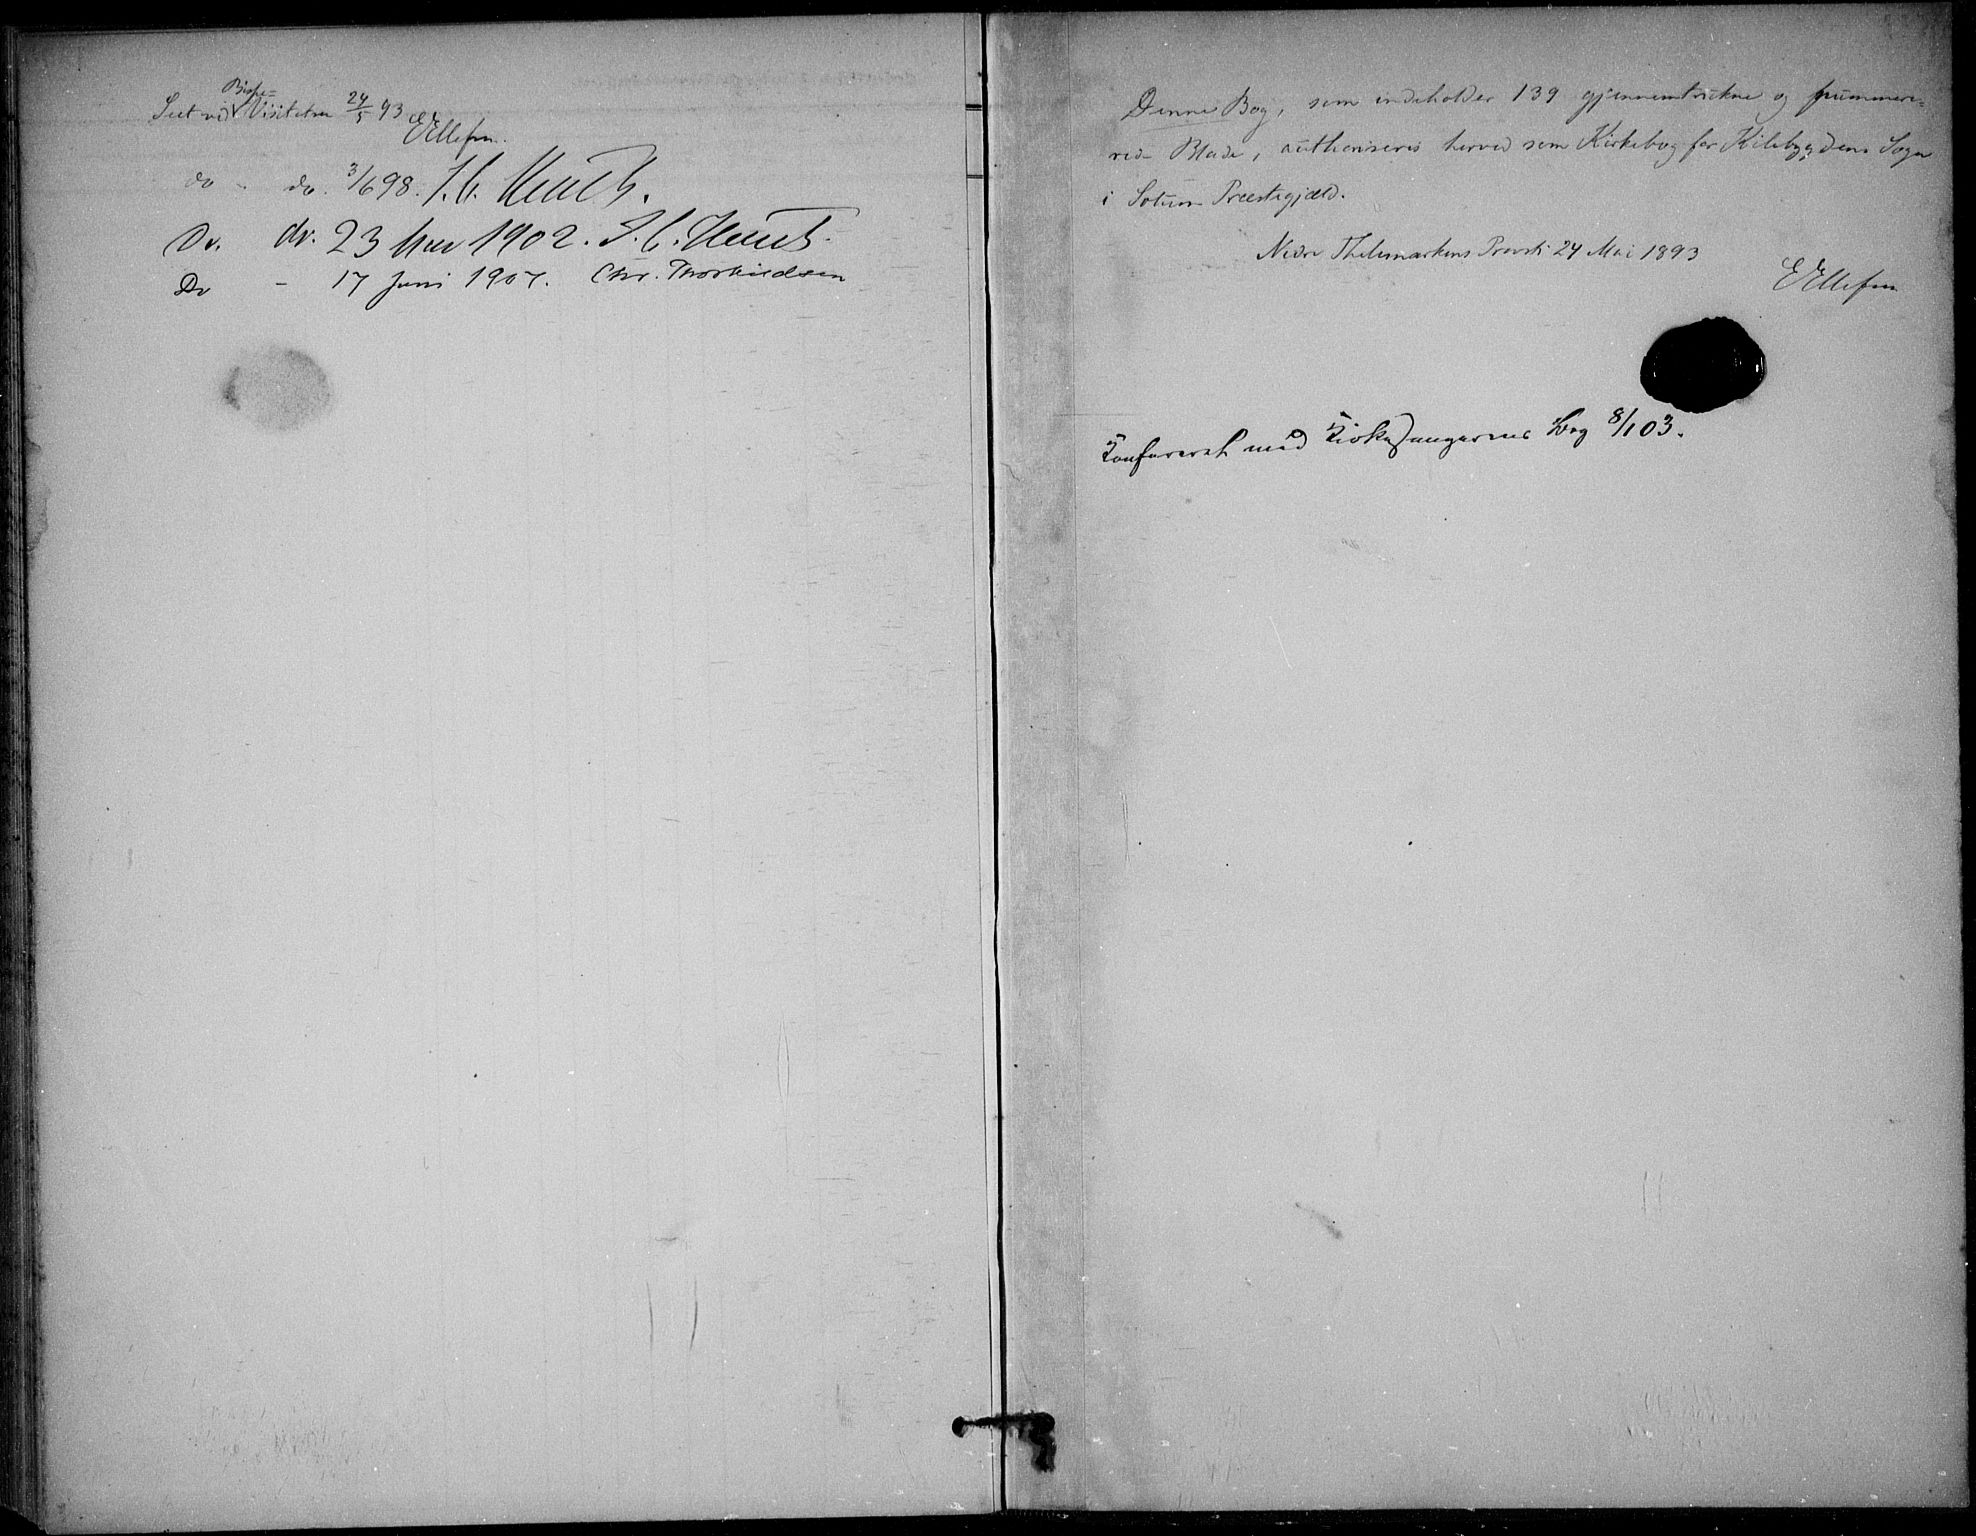 Seet ved Bispe=Visitatsen 24/5 93
EEllefsen.
do - do. 3/6 98. J. C. Heuch.
Do. do. 23 Mai 1902. J. C. Heuch.
Do - 17 Juni 1907. Chr. Thorkildsen
Denne Bog, som indeholder 139 gjennemtrukne og nummere=
rede Blade, authoriseres herved som Kirkebog for Kilebygdens Sogn
i Solum Præstegjæld.
Nedre Thelemarkens Provsti 24 Mai 1893
EEllefsen
Konfereret med Kirkesangerens Bog 8/1 03.